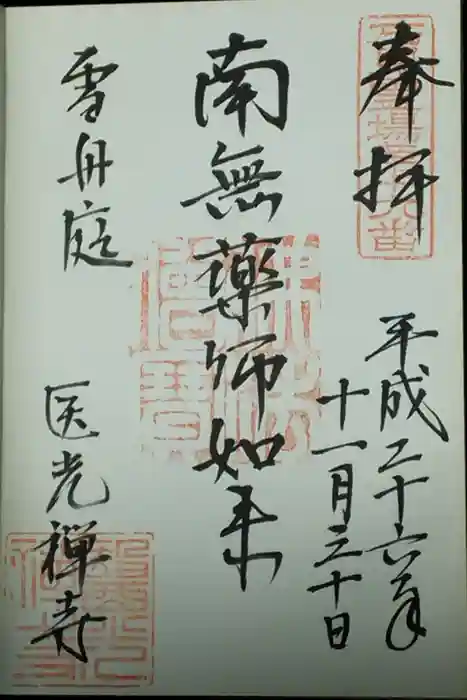 奉拝
平成二十六年
十一月三十日
南無薬師如来
雪舟庭
医光禅寺